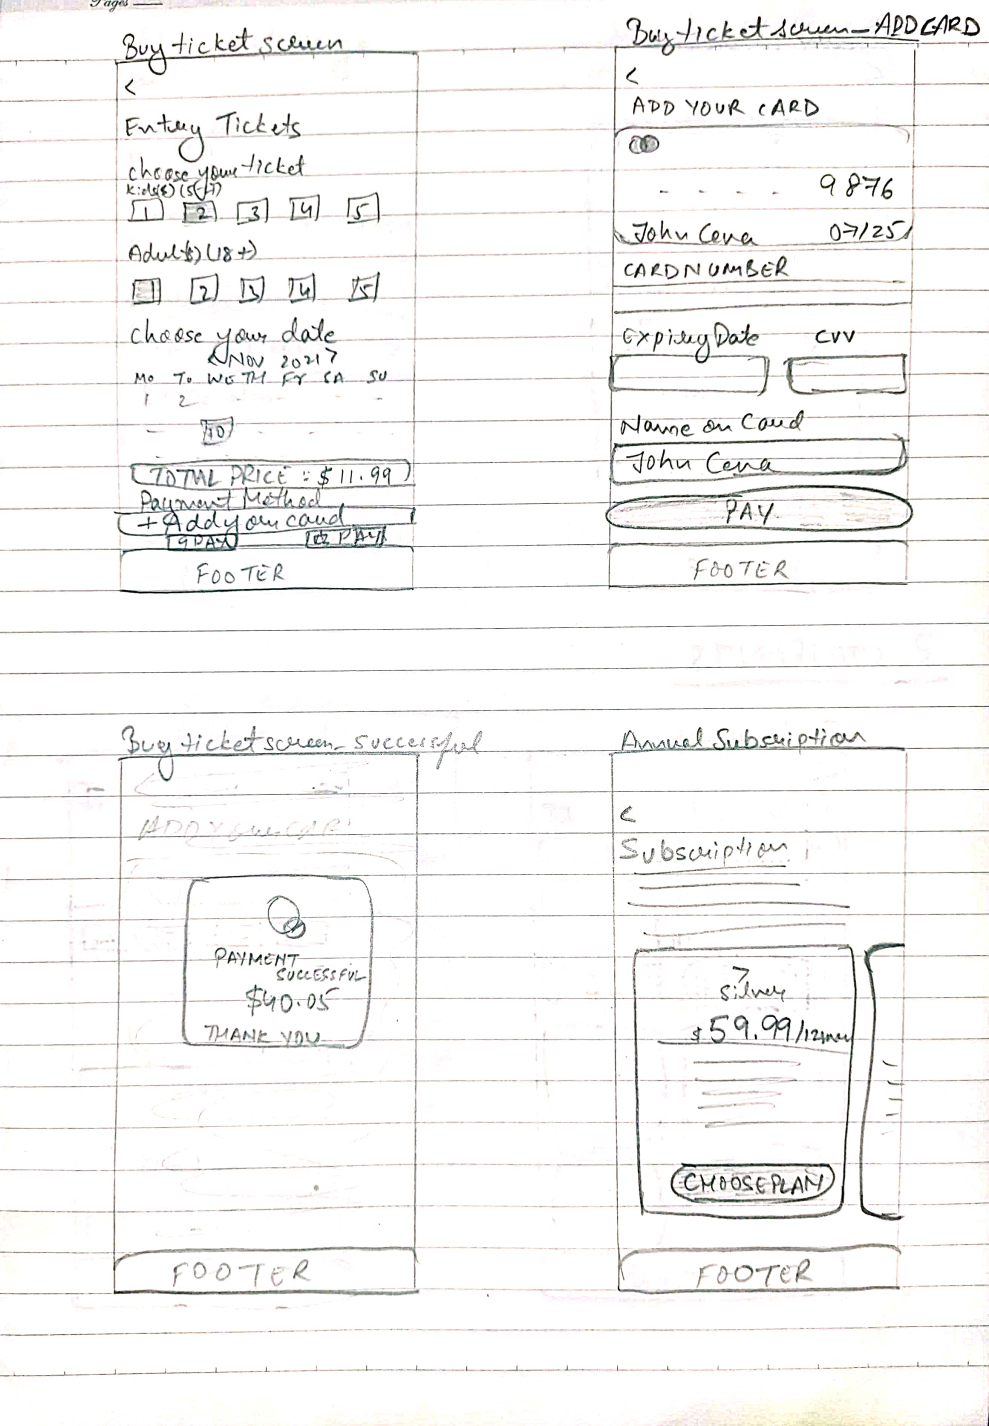 Pages
Buy ticket screen
<
Entry Tickets
choose your ticket
Kids(s) (5-17)
1 2 3 4 5
Adult(s) (18+)
1 2 3 4 5
choose your date
< NOV 2021 >
Mo Tu WE TH FY SA SU
1 2
10
TOTAL PRICE : $11.99
Payment Method
+ Add your card
GPAY PAY
FOOTER
Buy ticket screen - ADD CARD
<
ADD YOUR CARD
- - - - 9876
John Cena 07/25
CARD NUMBER
Expirey Date CVV
Name on Card
John Cena
PAY
FOOTER
Buy ticket screen - successful
ADD Your CARD
PAYMENT
SUCCESSFUL
$40.05
THANK YOU
FOOTER
Annual Subscription
<
Subscription
Silver
$59.99/12
CHOOSE PLAN
FOOTER